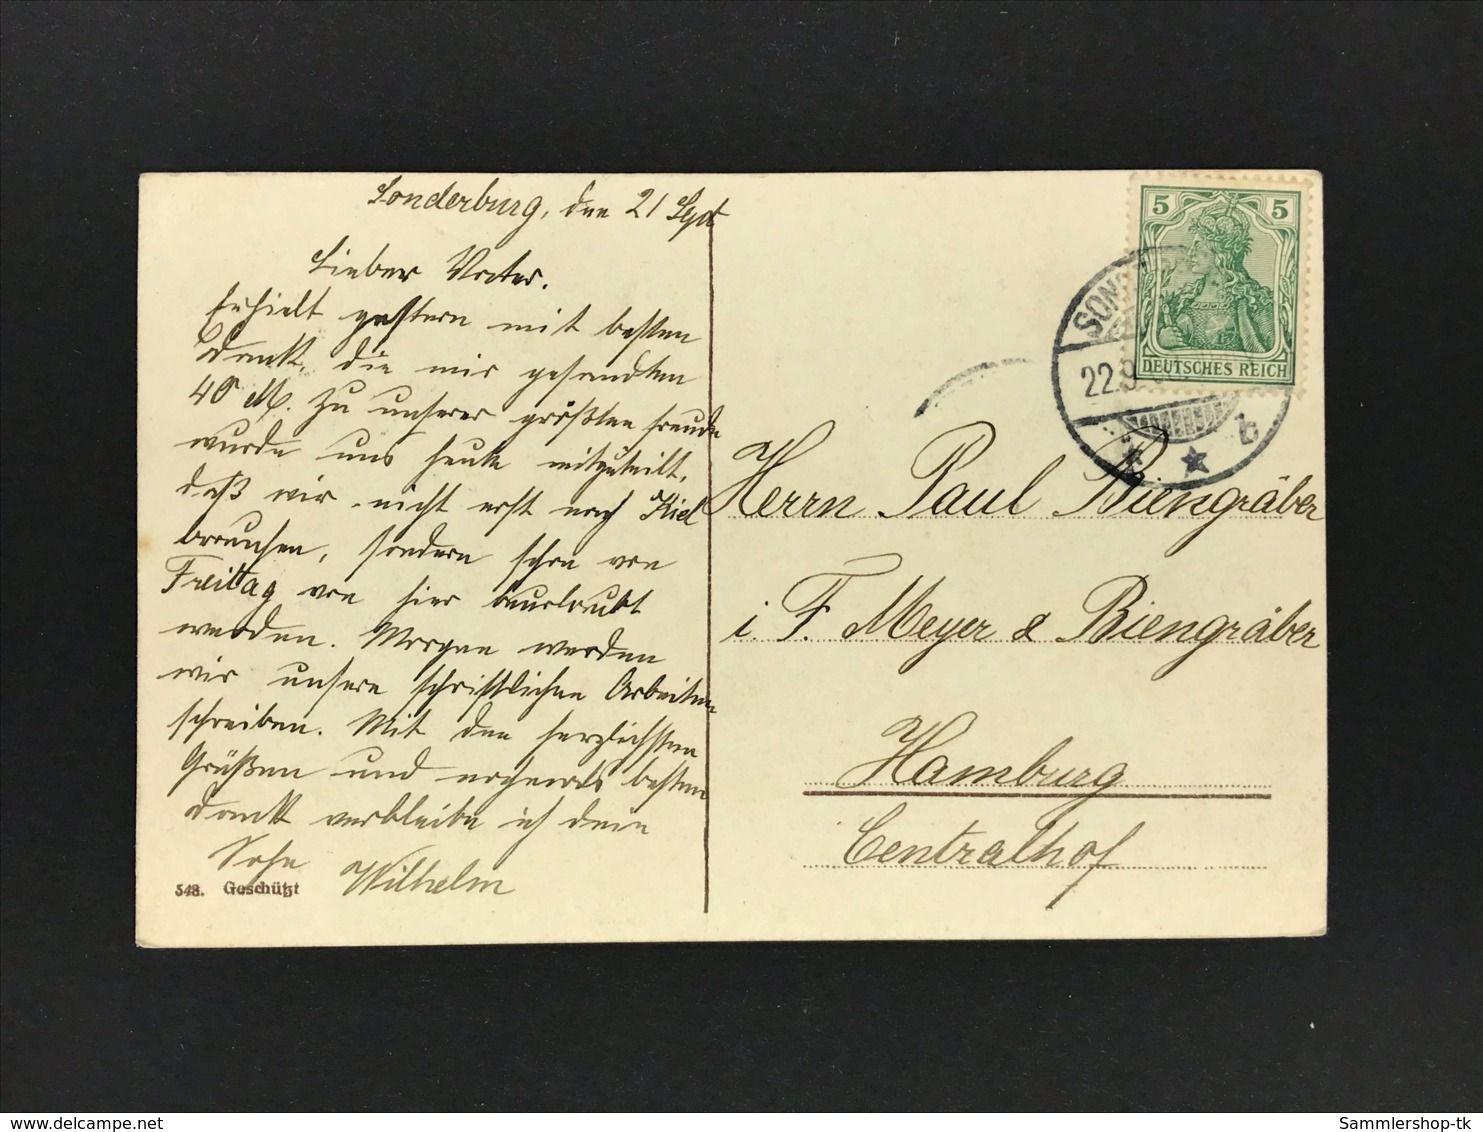 Sonderburg, den 21 Sept
Lieber Vater.
Erhielt gestern mit besten
Dank, die mir gesandten
40 M. Zu unserer größten Freude
wurde uns heute mitgeteilt,
daß wir nicht erst nach Kiel
brauchen, sondern schon von
Freitag von hier beurlaubt
werden. Morgen werden
wir unsere schriftlichen Arbeiten
schreiben. Mit den herzlichsten
Grüßen und nochmals besten
Dank verbleibe ich dein
Sohn Wilhelm
548. Geschützt
5 5
DEUTSCHES REICH
SON
22.9
b
Herrn Paul Biengräber
i. F. Meyer & Biengräber
Hamburg
Centralhof
Sammlershop-tk